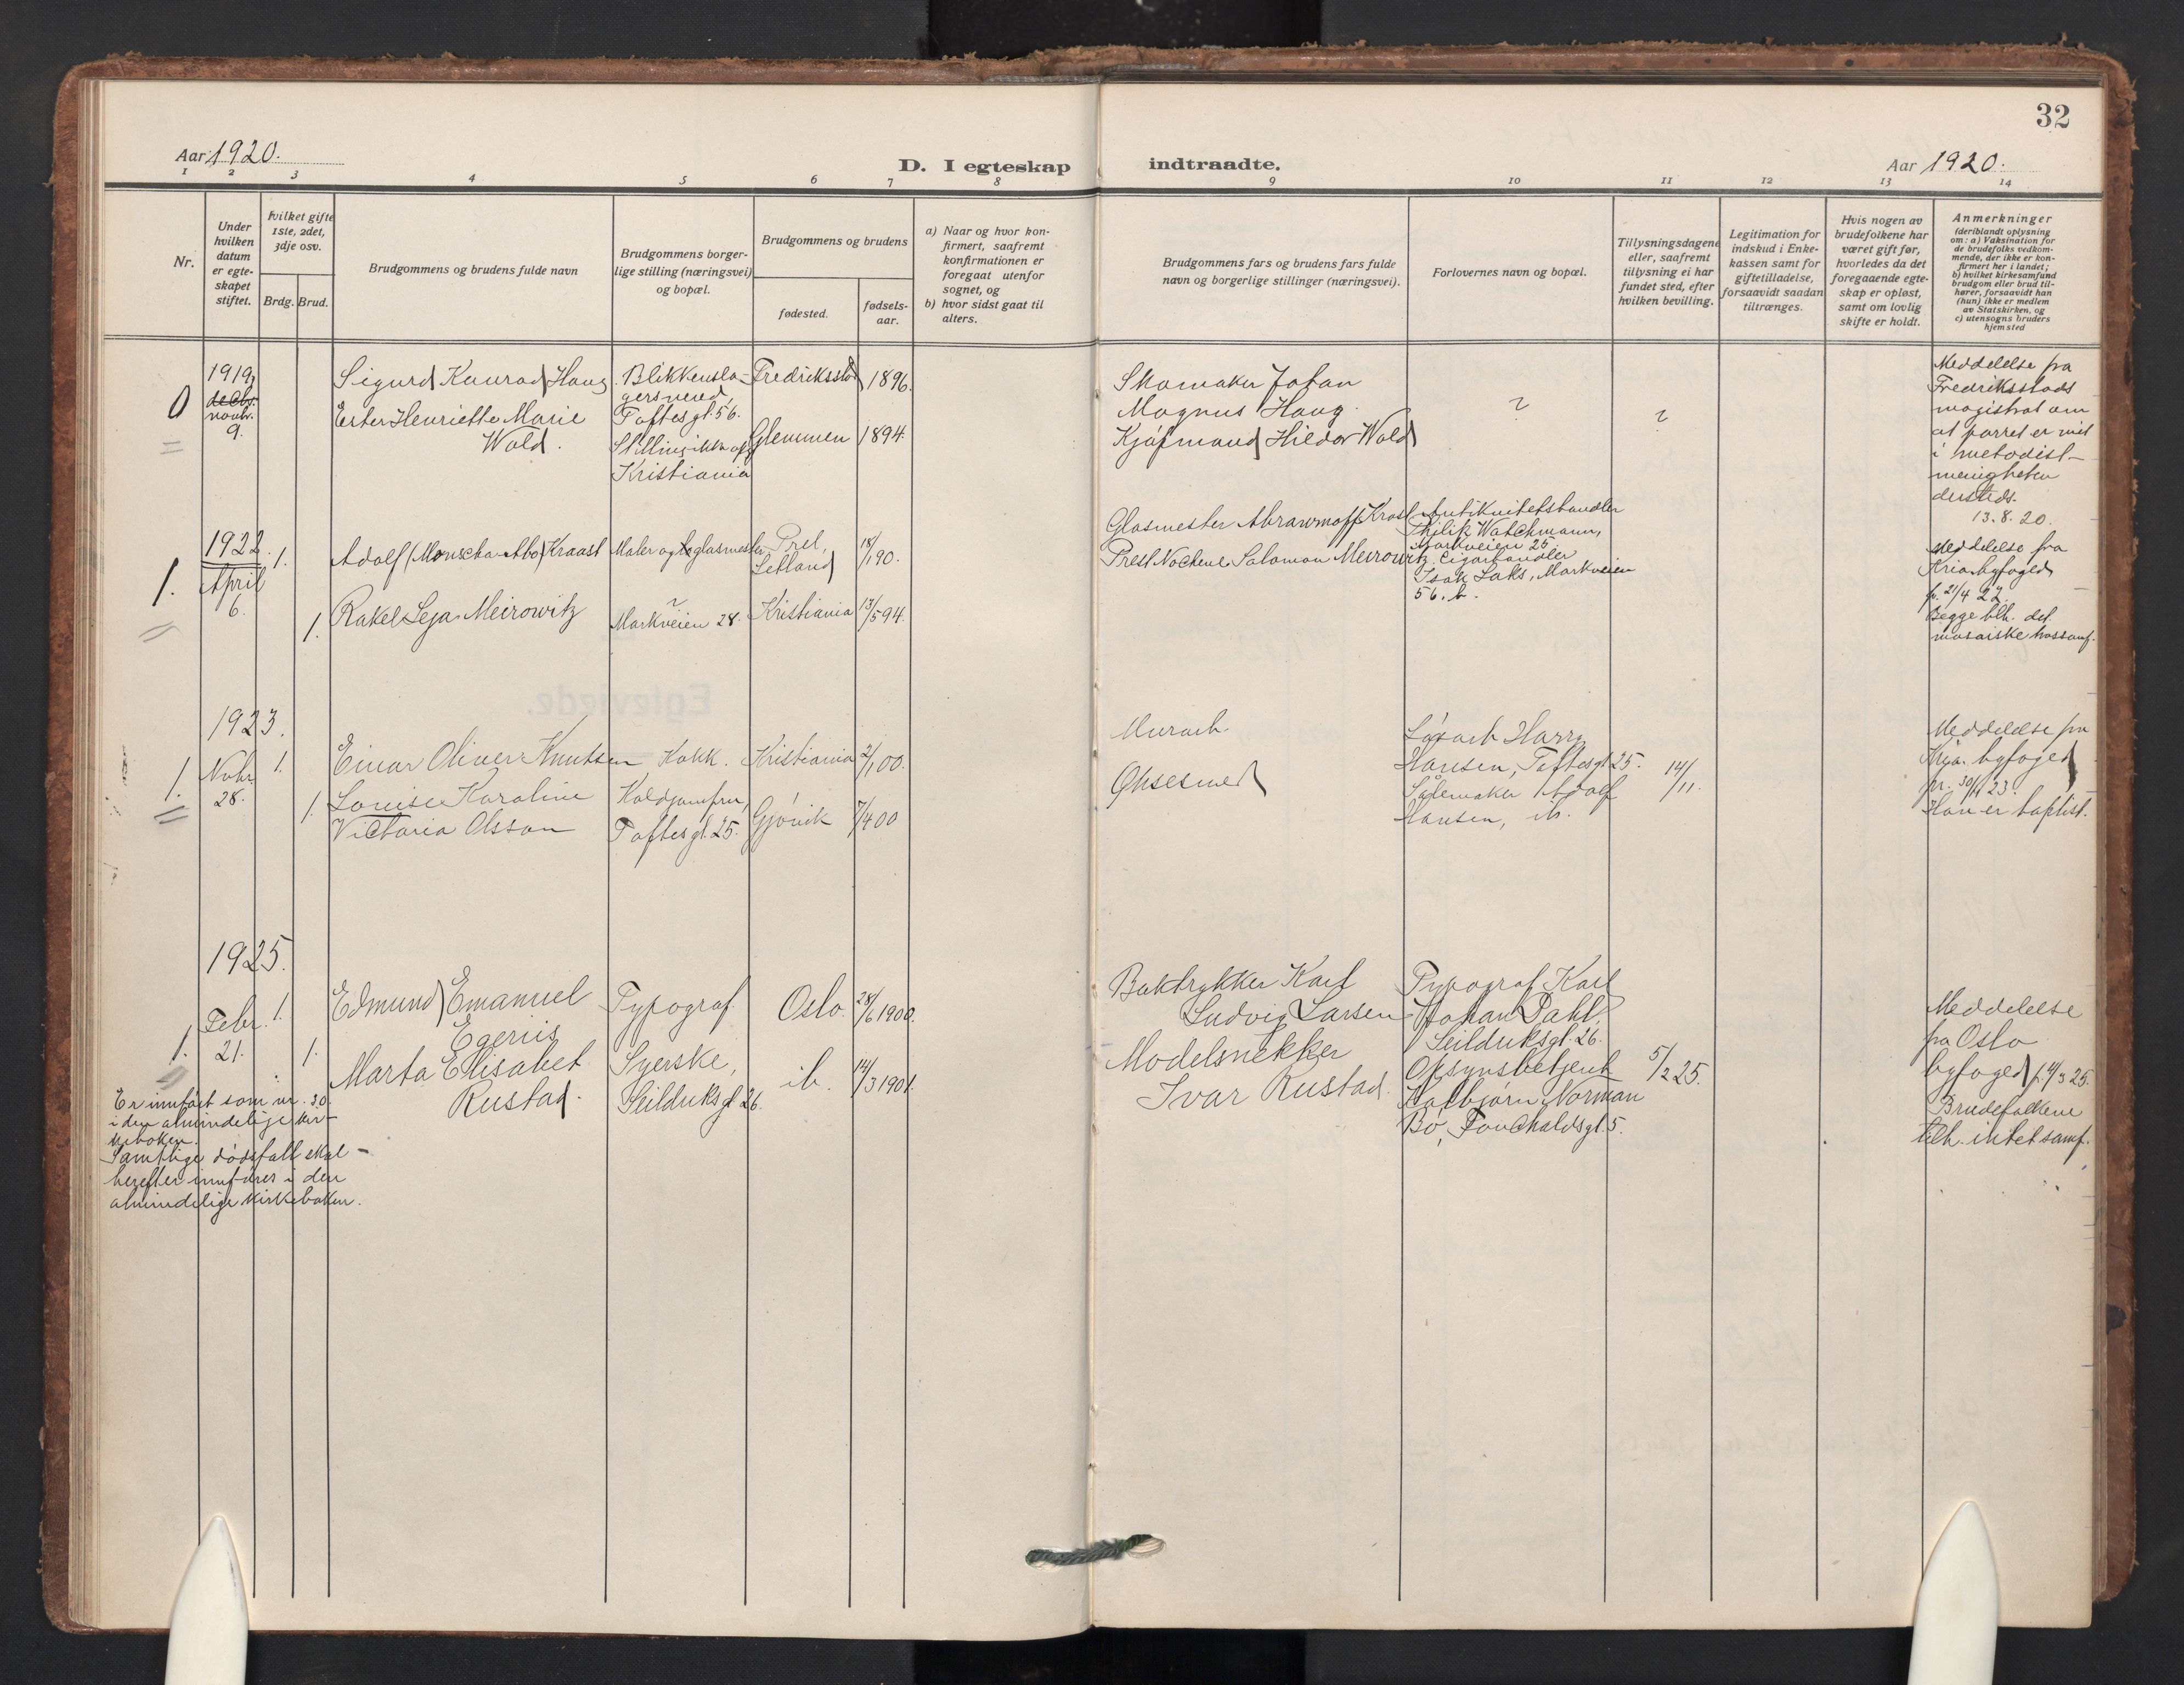 32
Aar 1920.
D. I egteskap indtraadte.
Aar 1920.
1 2 3 4 5 6 7 8 9 10 11 12 13 14
Nr.
Under
hvilken
datum
er egte-
skapet
stiftet.
hvilket gifte
1ste, 2det,
3dje osv.
Brdg. Brud.
Brudgommens og brudens fulde navn
Brudgommens borger-
lige stilling (næringsvei)
og bopæl.
Brudgommens og brudens
fødested.
fødsels-
aar.
a) Naar og hvor kon-
firmert, saafremt
konfirmationen er
foregaat utenfor
sognet, og
b) hvor sidst gaat til
alters.
Brudgommens fars og brudens fars fulde
navn og borgerlige stillinger (næringsvei).
Forlovernes navn og bopæl.
Tillysningsdagene
eller, saafremt
tillysning ei har
fundet sted, efter
hvilken bevilling.
Legitimation for
indskud i Enke-
kassen samt for
giftetilladelse,
forsaavidt saadan
tiltrænges.
Hvis nogen av
brudefolkene har
været gift før,
hvorledes da det
foregaaende egte-
skap er opløst,
samt om lovlig
skifte er holdt.
Anmerkninger
(deriblandt oplysning
om: a) Vaksination for
de brudefolks vedkom-
mende, der ikke er kon-
firmert her i landet;
b) hvilket kirkesamfund
brudgom eller brud til-
hører, forsaavidt han
(hun) ikke er medlem
av Statskirken, og
c) utensogns bruders
hjemsted
0
1919,
decbr.
novbr.
9.
Sigurd Kunrad Haug
Ester Henriette Marie
Wold.
Blikkensla-
gersvend,
Toftesgt. 56.
Stilling ikke opg.
Kristiania
Fredriksstad
Glemmen
1896.
1894.
Skomaker Johan
Magnus Haug.
Kjøpmand Hildor Wold
?
?
Meddelelse fra
Fredriksstads
magistrat om
at parret er viet
i metodist-
menigheten
dersteds.
13.8.20.
1.
1922.
April
6.
1.
1.
Adolf (Monscha Abo) Kraast
Rakel Leja Meirowitz
Maler og glasmester
?
Markveien 28.
Prel,
Letland
Kristiania
18/1 90.
13/5 94.
Glasmester Abrawmoff Krast
Prest Nochene Salomon Meirowitz
Antikvitetshandler
Philik Watchmann,
Markveien 25.
Cigarhandler
Isak Laks, Markveien
56. b.
Meddelelse fra
Kria byfoged
p. 21/4 22.
Begge tilh. det
mosaiske trossamf.
1.
1923.
Novbr.
28.
1.
1.
Einar Oliver Knutsen
Louise Karoline
Victoria Olsson
Kokk.
Koldjomfru,
Toftesgt. 25.
Kristiania
Gjøvik
2/1 00.
7/4 00
Murarb.
Øksesmed
Løsarb. Harry
Hansen, Toftesgt 25.
Salemaker Adolf
Hansen, ib.
14/11.
Meddelelse fra
Kria. byfoged
pr. 30/11 23.
Han er baptist.
1.
1925.
Febr.
21.
1.
1.
Edmund Emanuel
Egeriis
Marta Elisabet
Rustad.
Typograf
Syerske,
Seilduksgt 26.
Oslo.
ib.
28/6 1900.
14/3 1901.
Boktrykker Karl
Ludvig Larsen
Modelsnekker
Ivar Rustad.
Typograf Karl
Johan Dahl
Seilduksgt. 26.
Opsynsbetjent
Kolbjørn Norman
Bø, Fouchaldsgt 5.
5/2 25.
Meddelelse
fra Oslo
byfoged p. 4/3 25.
Brudefolkene
tilh. intet samf.
Er innført som nr. 30
i den almindelige kir-
keboken.
Samtlige dødsfall skal
herefter innføres i den
almindelige kirkeboken.